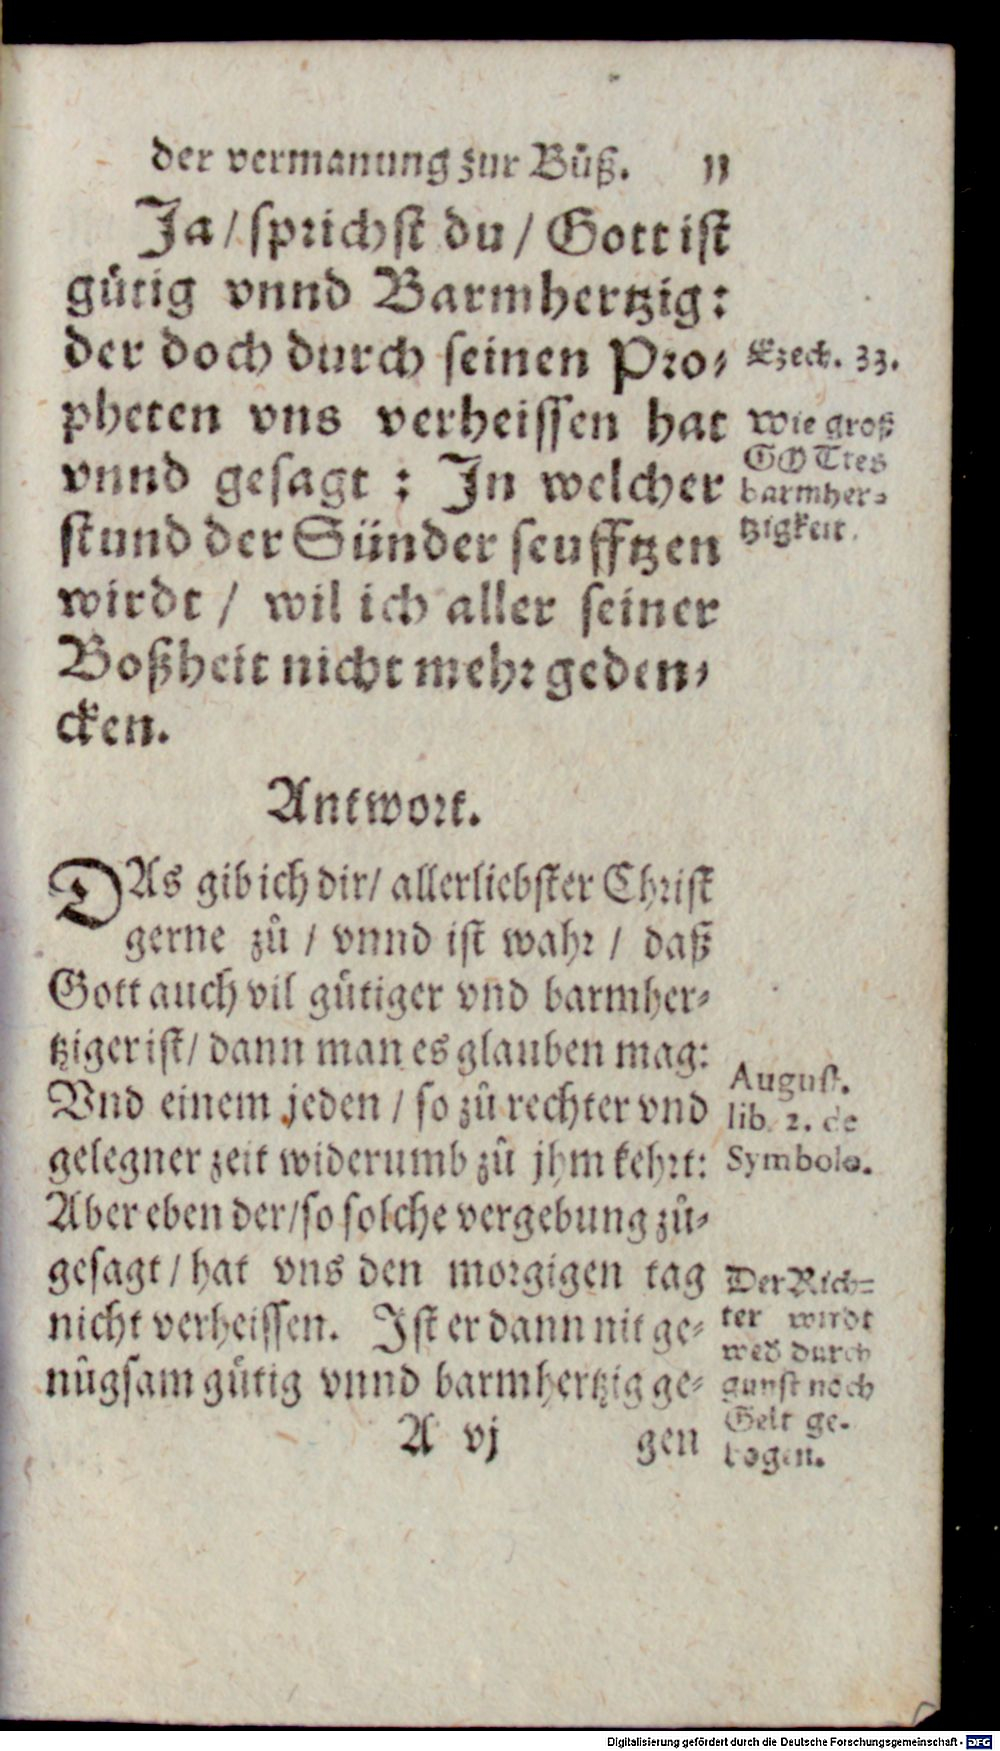 der vermanung zur Bůß. 11
Ja / sprichst du / Gott ist
gütig vnnd Barmhertzig:
der doch durch seinen Pro-
pheten vns verheissen hat
vnnd gesagt : In welcher
stund der Sünder seufftzen
wirdt / wil ich aller seiner
Boßheit nicht mehr geden-
cken.
Ezech. 33.
Wie groß
GOTtes
barmher-
tzigkeit.
Antwort.
DAs gib ich dir / allerliebster Christ
gerne zů / vnnd ist wahr / daß
Gott auch vil gütiger vnd barmher-
tziger ist / dann man es glauben mag:
Vnd einem jeden / so zů rechter vnd
gelegner zeit widerumb zů jhm kehrt:
Aber eben der / so solche vergebung zů-
gesagt / hat vns den morgigen tag
nicht verheissen. Ist er dann nit ge-
nůgsam gütig vnnd barmhertzig ge-
August.
lib. 2. de
Symbolo.
Der Rich-
ter wirdt
wed durch
gunst noch
Gelt ge-
bogen.
A vj gen
Digitalisierung gefördert durch die Deutsche Forschungsgemeinschaft - DFG